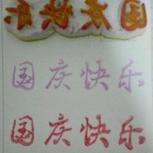 国庆快乐
国庆快乐
国庆快乐